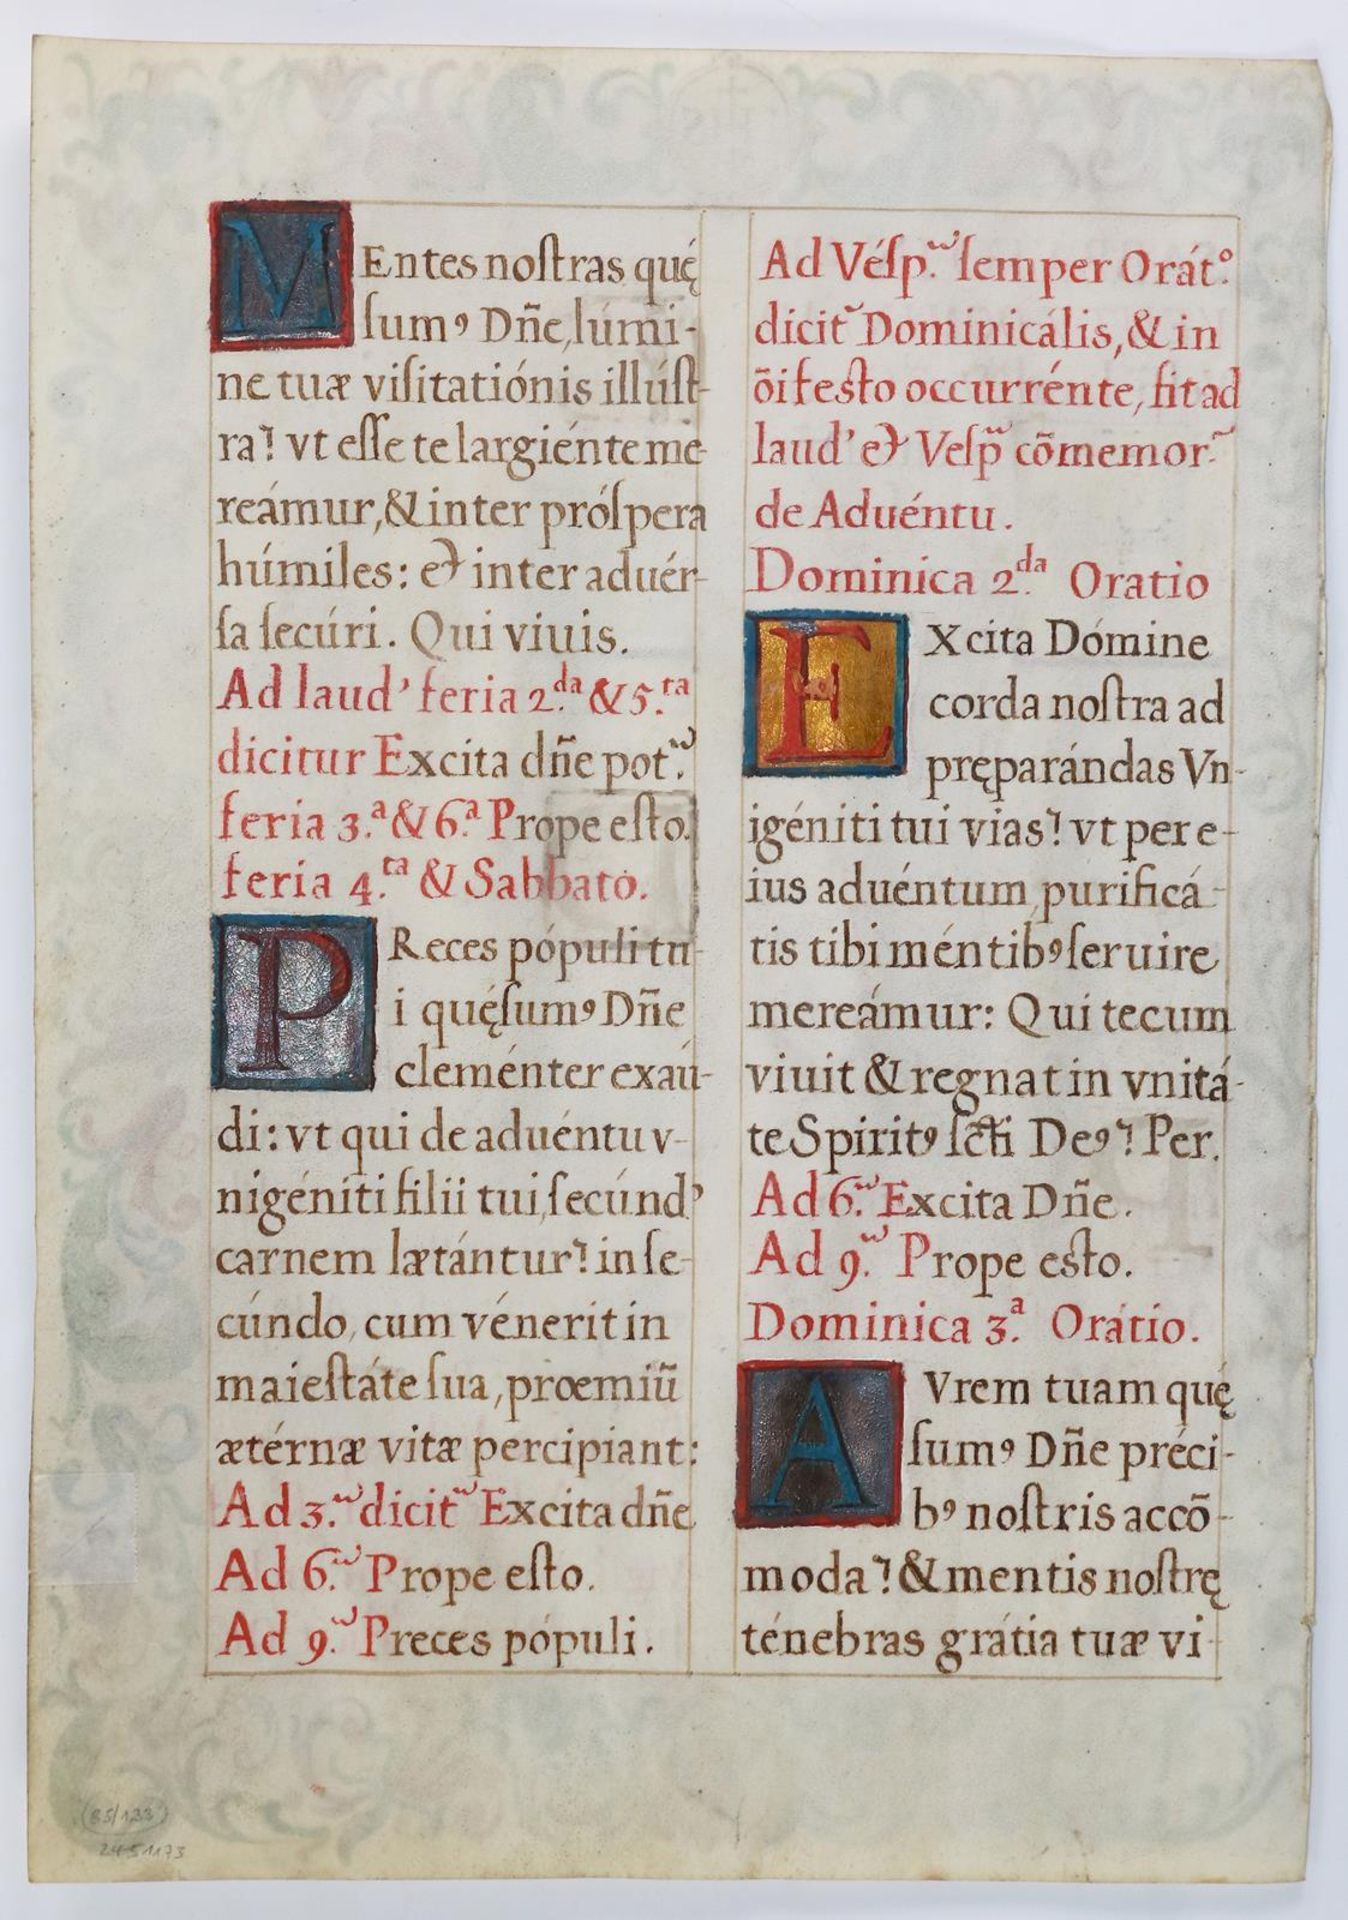 MEntes nostras quę́
sumꝰ Dn̄e, lúmi-
ne tuæ visitatiónis illúst-
ra! vt esse te largiénte me-
reámur, & inter próspera
húmiles: et inter aduér-
sa secúri. Qui viuis.
Ad laud' feria 2.da & 5.ta
dicitur Excita dn̄e pot.
feria 3.a & 6.a Prope esto.
feria 4.ta & Sabbato.
PReces pópuli tu-
i quę́sumꝰ Dn̄e
cleménter exáu-
di: vt qui de aduéntu v-
nigéniti filii tui, secúnd'
carnem lætántur! in se-
cúndo, cum vénerit in
maiestáte sua, prœmiū
ætérnæ vitæ percipiant:
Ad 3. dicit Excita dn̄e
Ad 6. Prope esto.
Ad 9. Preces pópuli.
Ad Vésp. semper Orát.o
dicit Dominicális, & in
ōi festo occurrénte, fit ad
laud' et Vesp cōmemor.
de Aduéntu.
Dominica 2.da Oratio
EXcita Dómine
corda nostra ad
pręparándas Vn-
igéniti tui vias! vt per e-
ius aduéntum, purificá-
tis tibi méntibꝰ seruire
mereámur: Qui tecum
viuit & regnat in vnitá-
te Spiritꝰ scti Deꝰ! Per.
Ad 6. Excita Dn̄e.
Ad 9. Prope esto.
Dominica 3.a Orátio.
AVrem tuam quę́
sumꝰ Dn̄e préci-
bꝰ nostris accō-
moda! & mentis nostrę
ténebras grátia tuæ vi-
(85/133)
24 51173